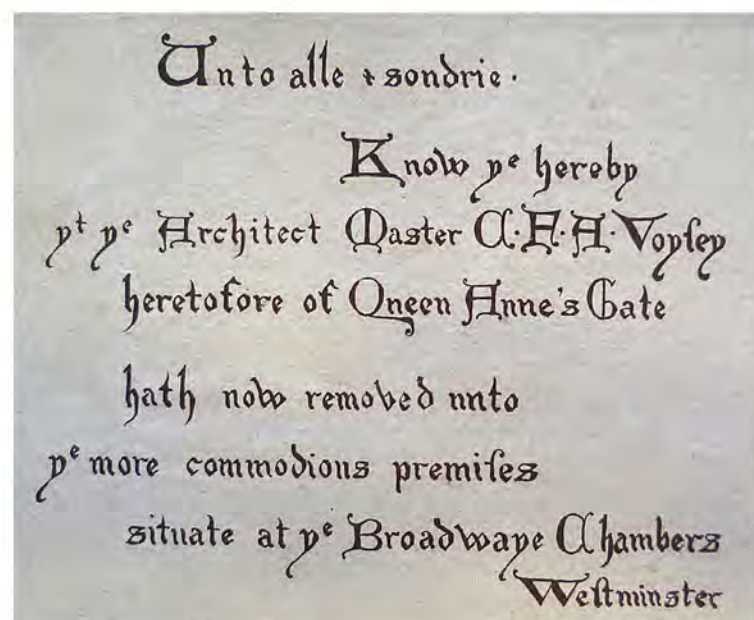 Unto alle & sondrie.
Know yᵉ hereby
yᵗ yᵉ Architect Master C.F.A. Voyſey
heretofore of Queen Anne's Gate
hath now removed unto
yᵉ more commodious premiſes
situate at yᵉ Broadwaye Chambers
Weſtminster